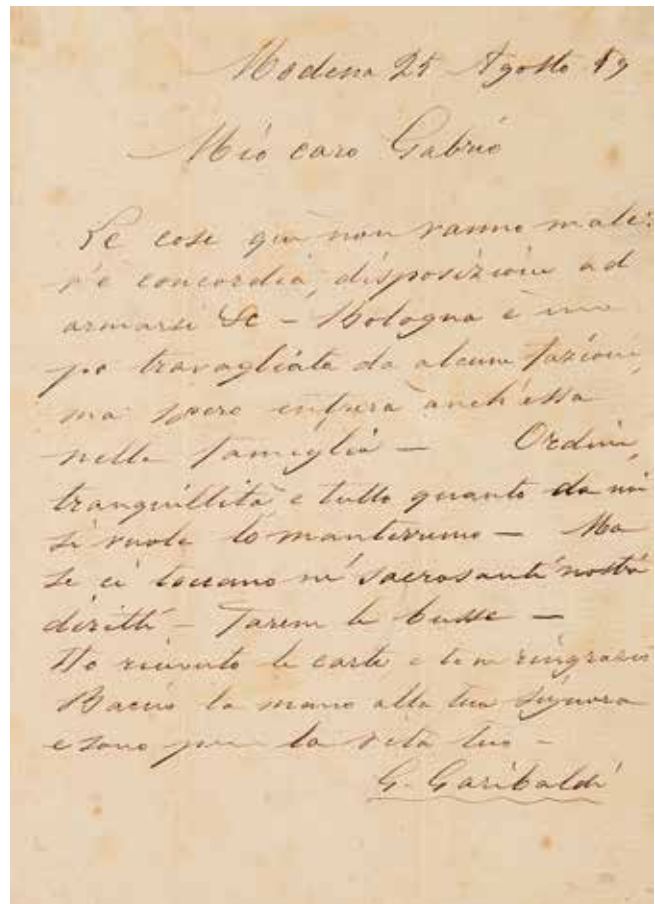 Modena 25 Agosto 59
Mio caro Gabrio
Le cose qui non vanno male:
v'è concordia, disposizione ad
armarsi &c - Bologna è un
po travagliata da alcune fazioni,
ma spero entrerà anch'essa
nella famiglia — Ordine,
tranquillità e tutto quanto da noi
si vuole lo manterremo — Ma
se ci toccano ne' sacrosanti nostri
diritti - Farem le busse —
Ho ricevuto le carte e te ne ringrazio
Bacio la mano alla tua signora
e sono per la vita tuo -
G. Garibaldi